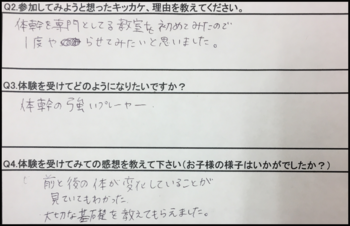 Q2.参加してみようと想ったキッカケ、理由を教えてください。
体幹を専門としてる教室を初めてみたので
1度やらせてみたいと思いました。
Q3.体験を受けてどのようになりたいですか？
体幹の強いプレーヤー
Q4.体験を受けてみての感想を教えて下さい（お子様の様子はいかがでしたか？）
前と後の体が変化していることが
見ていてもわかった。
大切な基礎を教えてもらえました。